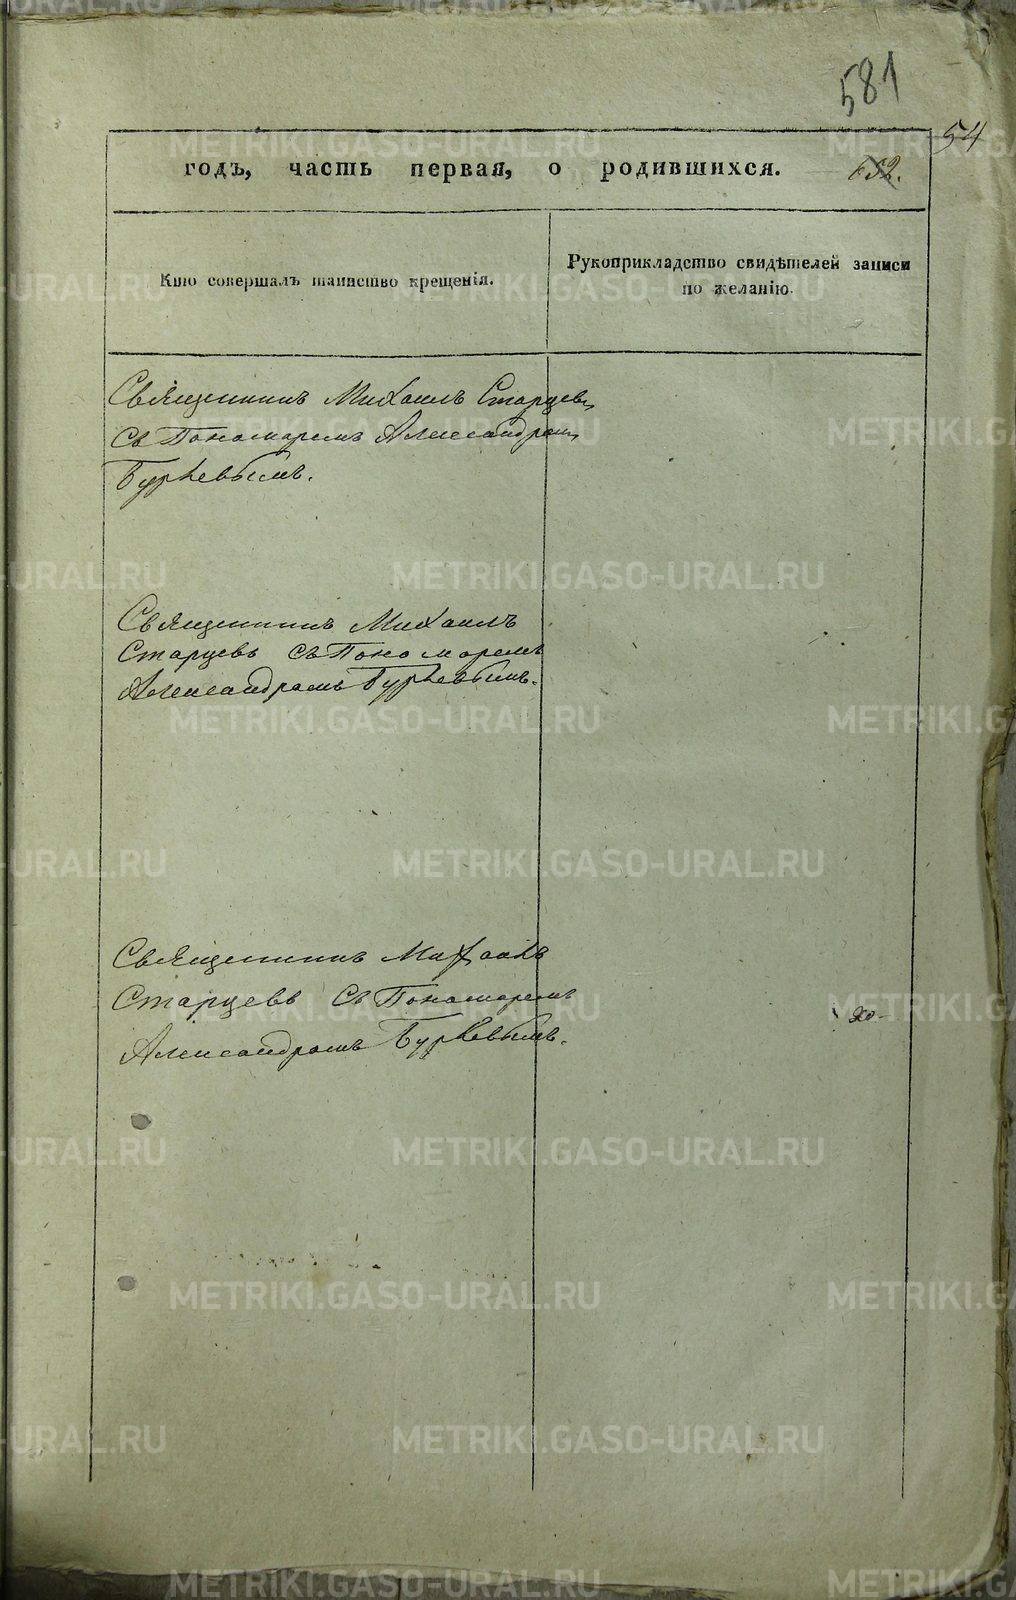 581
54
годъ, часть первая, о родившихся. 652.
Кто совершалъ таинство крещенія.
Рукоприкладство свидѣтелей записи
по желанію.
Священникъ Михаилъ Старцевъ
съ Пономаремъ Александромъ
Бурневымъ.
Священникъ Михаилъ
Старцевъ съ Пономаремъ
Александромъ Бурневымъ.
Священникъ Михаилъ
Старцевъ съ Пономаремъ
Александромъ Бурневымъ.
METRIKI.GASO-URAL.RU